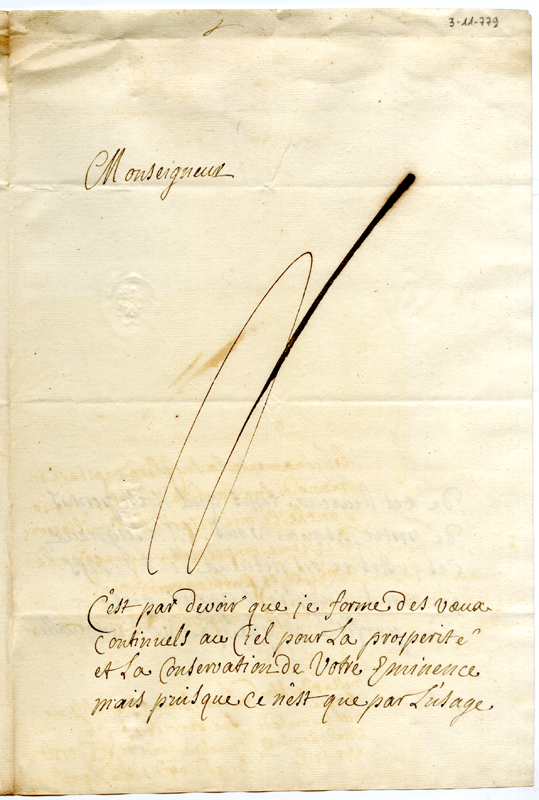 3-11-779
Monseigneur
C'est par devoir que je forme des vœux
continuels au Ciel pour La prosperité
et La Conservation de Votre Eminence
mais puisque ce n'est que par L'usage